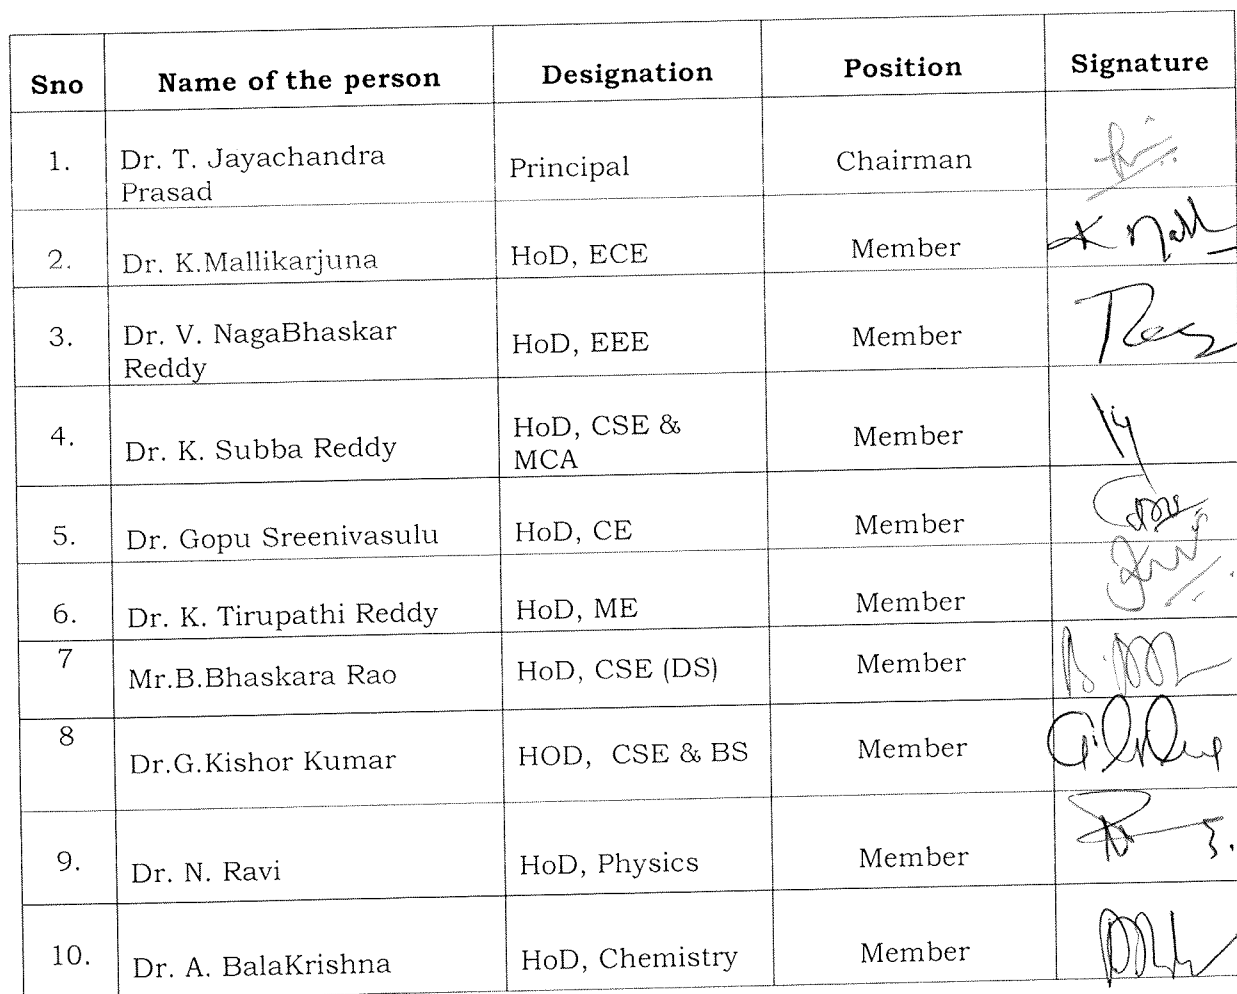 Sno Name of the person Designation Position Signature
1. Dr. T. Jayachandra Prasad Principal Chairman
2. Dr. K.Mallikarjuna HoD, ECE Member
3. Dr. V. NagaBhaskar Reddy HoD, EEE Member
4. Dr. K. Subba Reddy HoD, CSE & MCA Member
5. Dr. Gopu Sreenivasulu HoD, CE Member
6. Dr. K. Tirupathi Reddy HoD, ME Member
7 Mr.B.Bhaskara Rao HoD, CSE (DS) Member
8 Dr.G.Kishor Kumar HOD, CSE & BS Member
9. Dr. N. Ravi HoD, Physics Member
10. Dr. A. BalaKrishna HoD, Chemistry Member